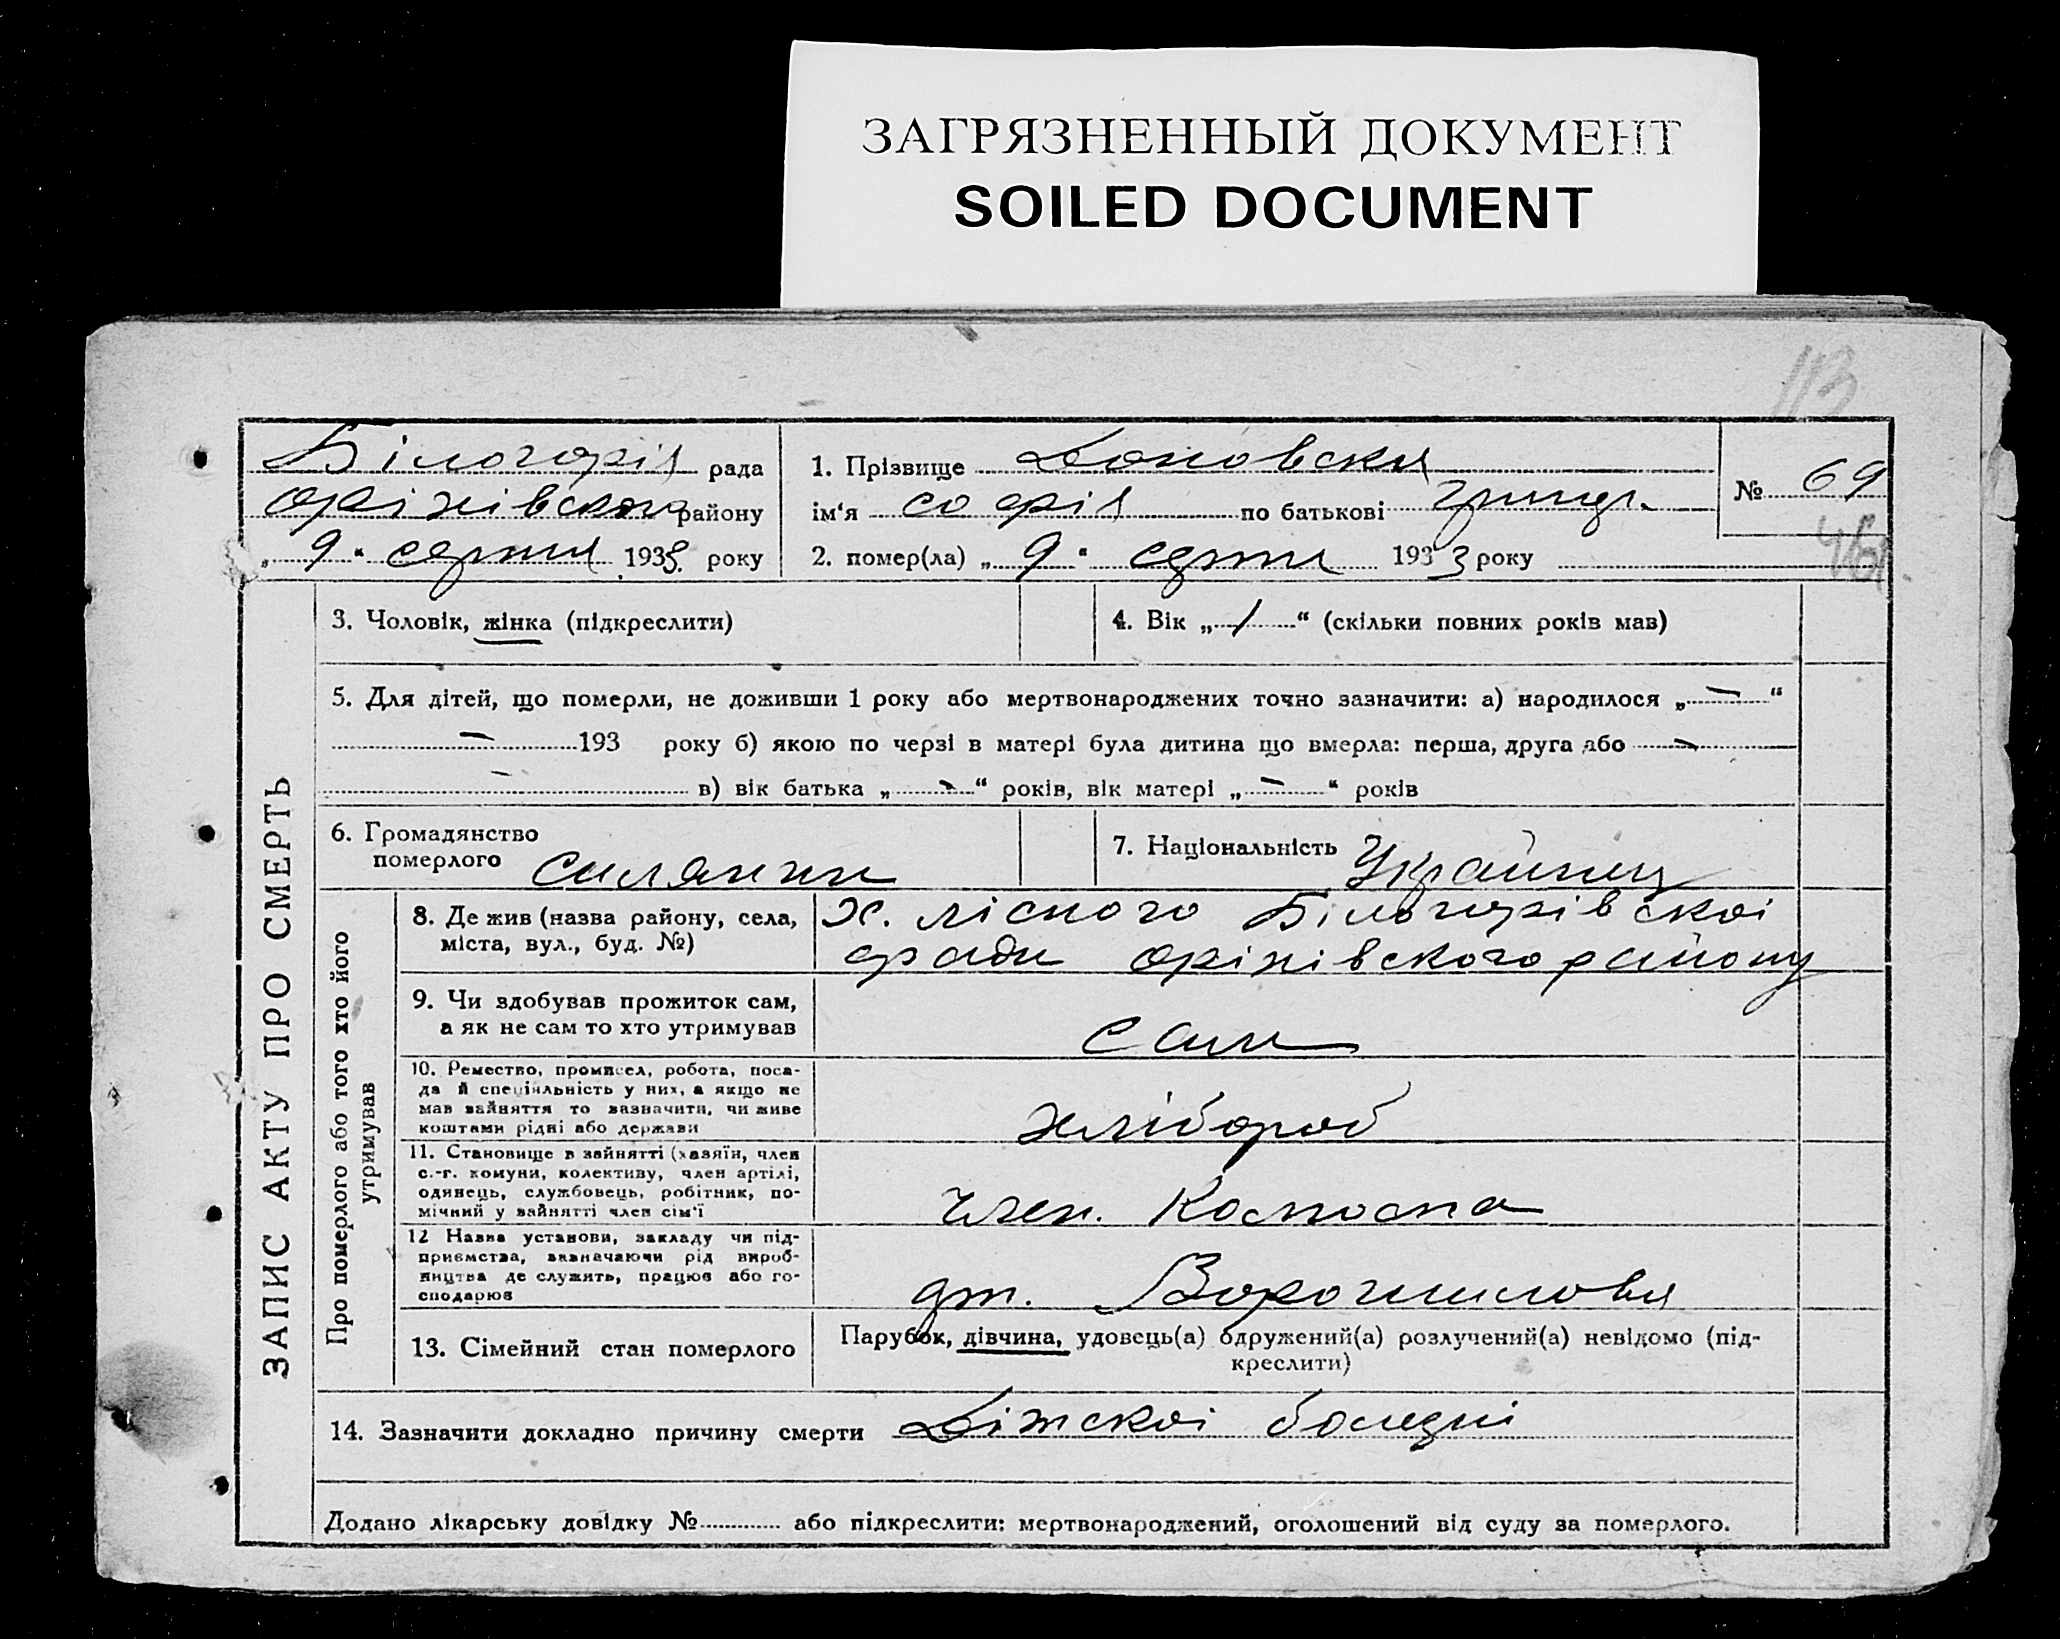 ЗАГРЯЗНЕННЫЙ ДОКУМЕНТ
SOILED DOCUMENT
113
Білогорія рада
оріхівського району
„ 9 “ серпня 1933 року
1. Прізвище
ім‘я софія по батькові григ.
2. помер(ла) „ 9 “ серпня 1933 року
№ 69
ЗАПИС АКТУ ПРО СМЕРТЬ
3. Чоловік, жінка (підкреслити)
4. Вік „ 1 “ (скільки повних років мав)
5. Для дітей, що померли, не доживши 1 року або мертвонароджених точно зазначити: а) народилося „ — “
— 193 року б) якою по черзі в матері була дитина що вмерла: перша, друга або —
— в) вік батька „ — “ років, вік матері „ — “ років
6. Громадянство
померлого силянин
7. Національність Українец
Про померлого або того хто його
утримував
8. Де жив (назва району, села,
міста, вул., буд. №)
х. лісного Білогорівскоі
ради оріхівского району
9. Чи здобував прожиток сам,
а як не сам то хто утримував
сам
10. Ремество, промисел, робота, поса-
да й спеціяльність у них, а якщо не
мав зайняття то зазначити, чи живе
коштами рідні або держави
хлібороб
11. Становище в зайнятті (хазяїн, член
с.-г. комуни, колективу, член артілі,
одинець, службовець, робітник, по-
мічний у зайнятті член сім‘ї
член. Колхоспа
12 Назва установи, закладу чи під-
приємства, зазначаючи рід вироб-
ництва де служить, працює або го-
сподарює
Ворошилова
13. Сімейний стан померлого
Парубок, дівчина, удовець(а) одружений(а) розлучений(а) невідомо (під-
креслити)
14. Зазначити докладно причину смерти Дітскоі болезні
Додано лікарську довідку № або підкреслити: мертвонароджений, оголошений від суду за померлого.